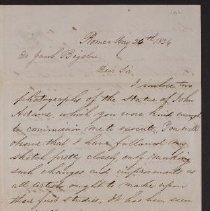 Rome May 26th 1854
Dr Jacob Bigelow
Dear Sir
I enclose two
photographs of the statue of John
Adams which you were kind enough
to commission me to execute. You will
observe that I have followed my
sketch pretty closely only making
such changes and improvements as
all artists ought to make upon
their first studies. It has been seen